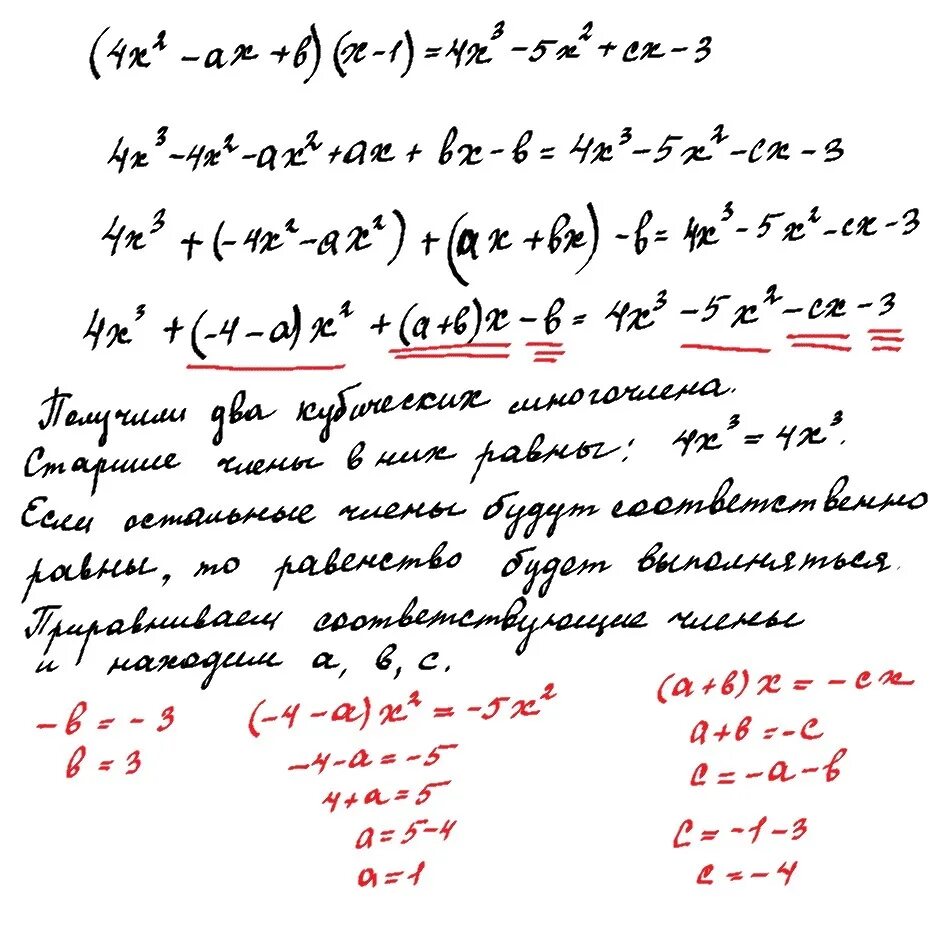 (4x² - ax + в)(x - 1) = 4x³ - 5x² + cx - 3
4x³ - 4x² - ax² + ax + вx - в = 4x³ - 5x² - cx - 3
4x³ + (-4x² - ax²) + (ax + вx) - в = 4x³ - 5x² - cx - 3
4x³ + (-4 - a)x² + (a + в)x - в = 4x³ - 5x² - cx - 3
Получили два кубических многочлена.
Старшие члены в них равны: 4x³ = 4x³.
Если остальные члены будут соответственно
равны, то равенство будет выполняться.
Приравниваем соответствующие члены
и находим a, в, c.
-в = -3
в = 3
(-4 - a)x² = -5x²
-4 - a = -5
4 + a = 5
a = 5 - 4
a = 1
(a + в)x = -cx
a + в = -c
c = -a - в
c = -1 - 3
c = -4